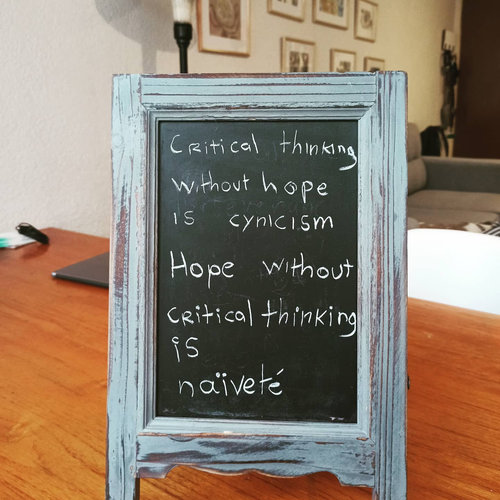 Critical thinking
without hope
is cynicism
Hope without
critical thinking
is
naïveté